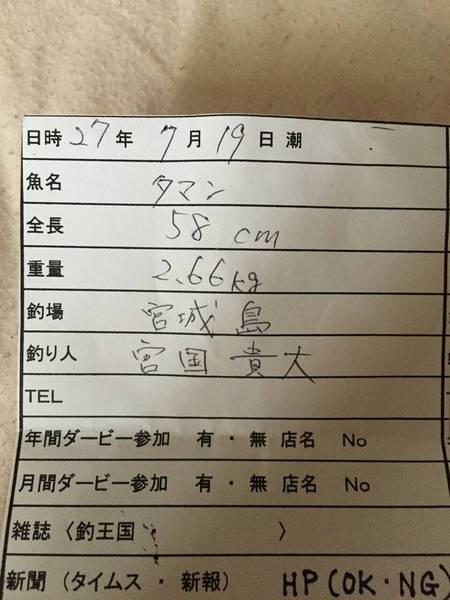 日時 27年 7月19日 潮
魚名 タマン
全長 58 cm
重量 2.66kg
釣場 宮城島
釣り人 宮国貴大
TEL
年間ダービー参加 有・無 店名 No
月間ダービー参加 有・無 店名 No
雑誌〈釣王国 〉
新聞（タイムス・新報） HP(OK・NG)